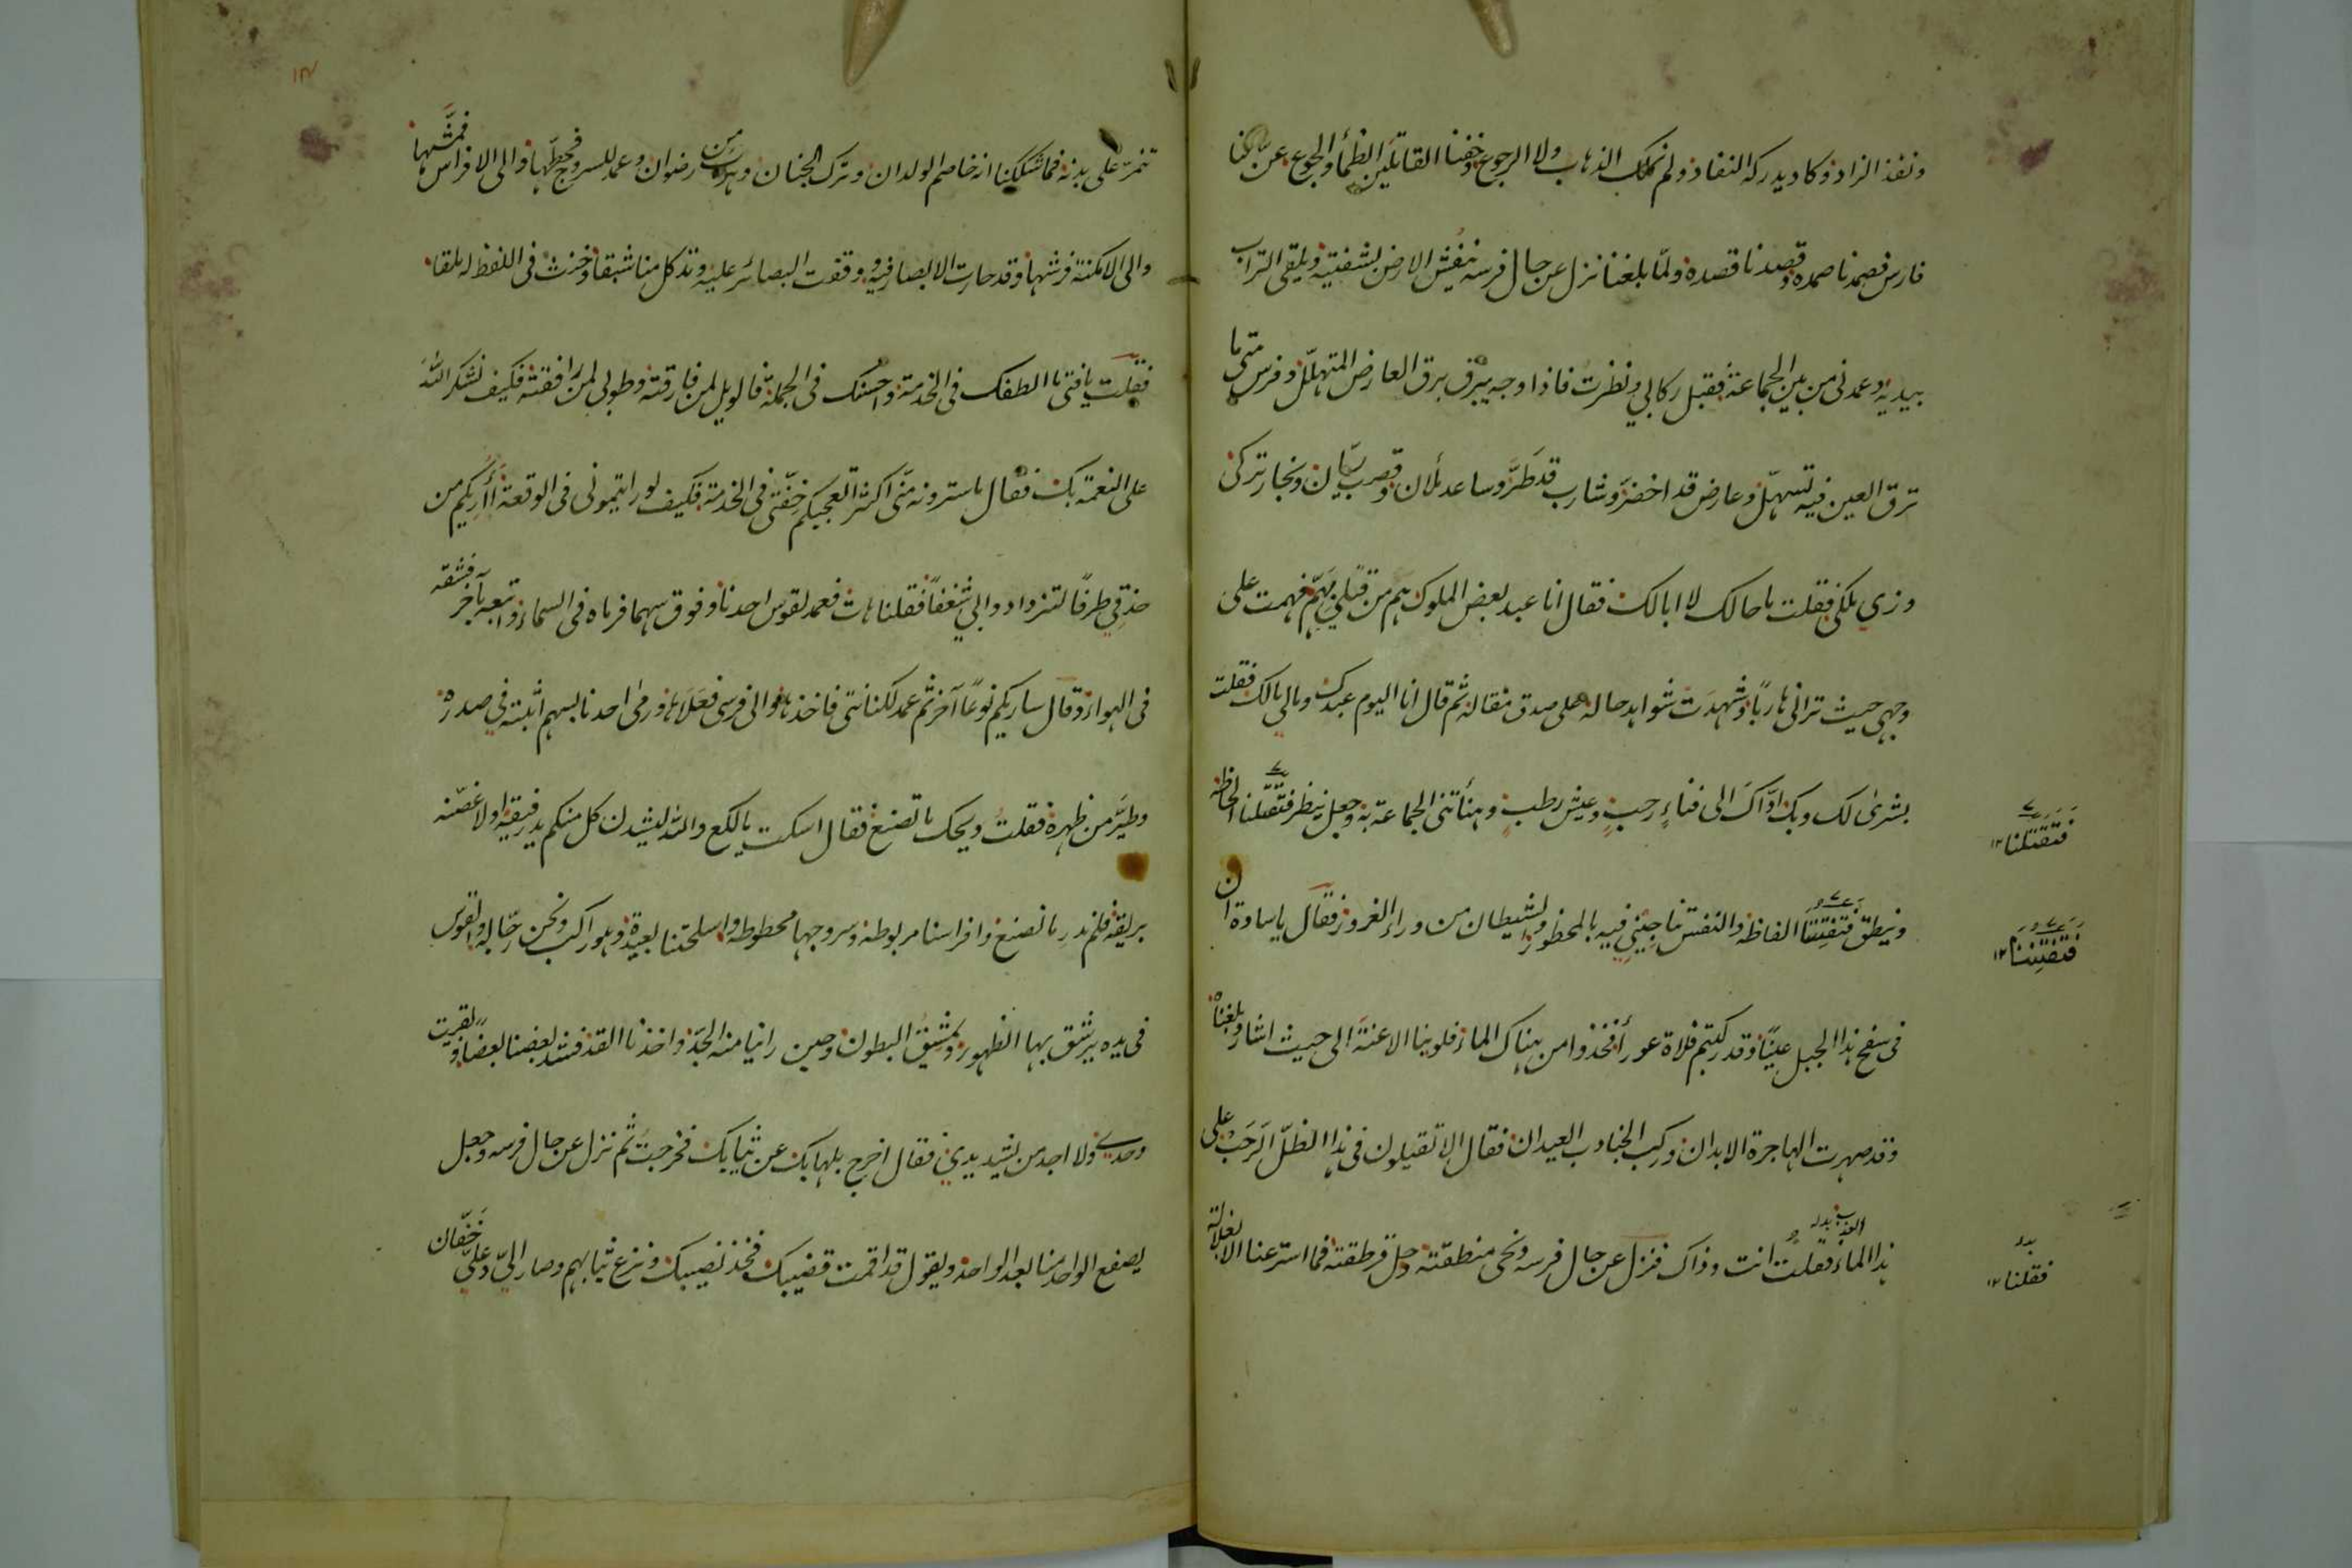 ونفذ الزاد وكاد يدركه النفاد ولم نملك الذهاب ولا الرجوع وخفنا القاتلين الظمأ والجوع عن لنا
فارس فصمدنا صمده وقصدنا قصده ولمّا بلغنا نزل عن حال فرسه ينقش الارض بشفتيه ويلقى التراب
بيديه وعمدنى من بين الجماعة فقبل ركابي ونظرت فاذا وجه يبرق برق العارض المتهلّل وفرس متى ما
ترق العين فيه تسهّل وعارض قد اخضر وشارب قد طَرَّ وساعد ملأن وقصيب ريّان ونجار تركى
وزي ملكي فقلت ما حالك لا ابا لك فقال انا عبد بعض الملوك همّ من قتلي بهمّ فهمت على
وجهى حيث ترانى هاربًا وشهدت شواهد حاله على صدق مقاله ثم قال انا اليوم عبدك ومالي مالك فقلت
بشرىٰ لك وبك ادّاكَ الى فناءٍ رحبٍ وعيش رطبٍ وهنأتنى الجماعة به وجعل ينظر فتقتّلنا الحاظه
وينطق فتفتننا الفاظه والنفس تناجينى فيه بالمحظور والشيطان من وراء الغرور فقال يا سادة ان
فى سفح هذا الجبل عينًا وقد ركبتم فلاة عورأ فخذوا من هناك الماء فلوينا الاعنّة الى حيث اشار وبلغناه
وقد صهرت الهاجرة الابدان وركب الجنادب العيدان فقال الا تقيلون فى هذا الظلّ الرَحب على
هذا الماء العذب بدله فقلت انت وذاك فنزل عن حال فرسه ونحى منطقته وحلّ قرطقته فما استر عنا الا بغلالة
فتقتلنا ١٢
فتفتننا ١٢
بدله فقلنا ١٢
تنمّ على بدنه فما شككنا انه خاصم الولدان وترك الجنان وهرب من رضوان وعمد للسروج فحطّها والى الافراس فمشّها
والى الامكنة فرشها وقد حارت الابصار فيه ووقفت البصائر عليه وتد كل منا شبقا وخنث فى اللفظ له ملقا
فقلت يا فتى ما الطفك فى الخدمة واحسنك فى الجملة فالويل لمن فارقته وطوبى لمن رافقته فكيف نشكر الله
على النعمة بك فقال ما سترونه منّى اكثر اتعجبكم خفّتى فى الخدمة فكيف لو رايتمونى فى الوقعة أأُريكم من
حذقي طرفًا لتزدادوا بي شغفًا فقلنا هات فعمد لقوس احدنا وفوق سهما فرماه فى السماء واتبعه بآخر فشقه
فى الهواء وقال ساريكم نوعًا آخر ثم عمد لكنانتى فاخذها والى فرسى فعَلَاها ورمىٰ احدنا بسهم اثبته في صدره
وطيّر من ظهره فقلت ويحك ما تصنع فقال اسكت يا لكع والله ليشدن كل منكم يد رفيقه او لاغصّنه
بريقه فلم ندر ما نصنع وافراسنا مربوطة وسروجها محطوطة واسلحتنا بعيدة وهو راكب ونحن رجّالة والقوس
فى يده يرشق بها الظهور ويمشق البطون وحين راينا منه الجدّ واخذنا القد فشد بعضنا بعضا وبقيت
وحدي ولا اجد من يشد يدي فقال اخرج بلهابك عن ثيابك فخرجت ثم نزل عن حال فرسه وجعل
يصفع الواحد منا بعد الواحد ويقول قد اقمت قضيبك فخذ نصيبك ونزع ثيابهم وصار اليّ وعليّ خفّان